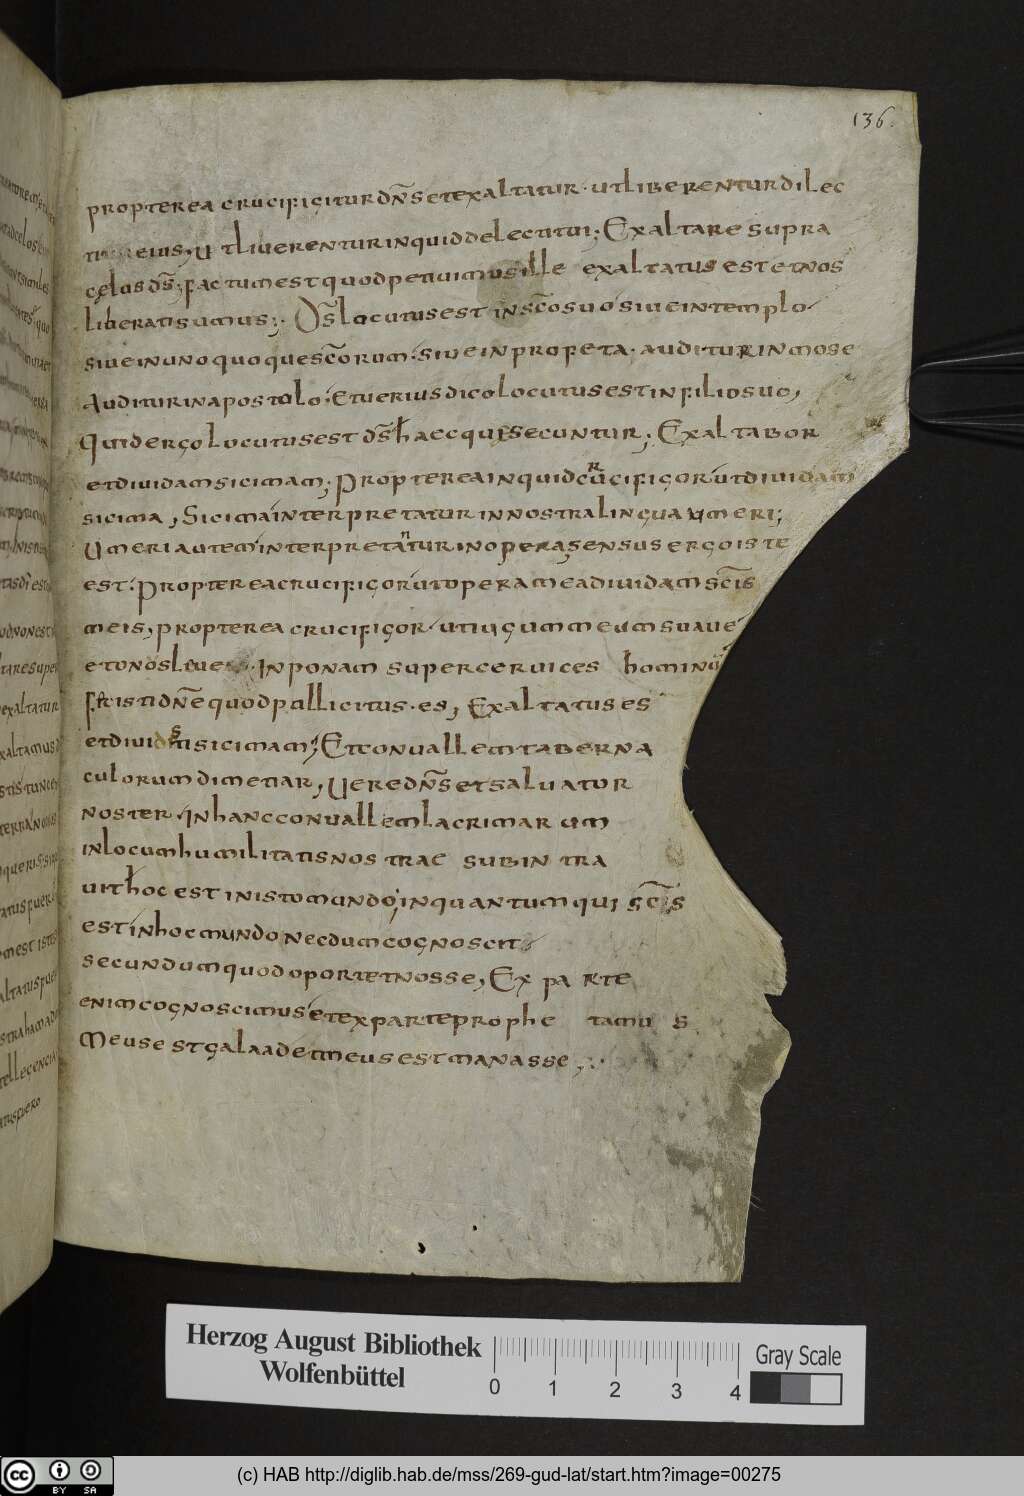 136.
propterea crucifigitur dn̄s et exaltatur. ut liberentur dilec
ti eius, ut liuerentur inquid delecti tui; Exaltare supra
cęlos ds̄; factum est quod petiuimus ille exaltatus est et nos
liberati sumus;. Ds̄ locutus est in sc̄o suo siue in templo.
siue in unoquoque sc̄orum. siue in profeta. auditur in mose
Auditur in apostolo. Et uerius dico locutus est in filio suo,
Quid ergo locutus est ds̄ haec que secuntur; Exaltabor
et diuidam sicimam; Propterea inquid crucifigor ut diuidam
sicima, Sicima interpretatur in nostra lingua umeri;
Umeri autem interpretantur in opera, sensus ergo iste
est. Propterea crucifigor ut opera mea diuidam sc̄is
meis, propterea crucifigor. ut iugum meum suaue
et onos leue inponam super ceruices hominū
fecisti dn̄e quod pollicitus. es, Exaltatus es
et diuidisti sicimam; Et conuallem taberna
culorum dimetiar, Vere dn̄s et saluator
noster. in hanc conuallem lacrimarum
in locum humilitatis nos trae sub in tra
uit hoc est in isto mundo, in quantum qui sc̄is
est in hoc mundo necdum cognoscit
secundum quod oportet nosse, Ex pa rte
enim cognoscimus et ex parte prophe tamu s
Meus est galaad et meus est manasse,:.
Herzog August Bibliothek
Wolfenbüttel
0 1 2 3 4
Gray Scale
cc BY SA
(c) HAB http://diglib.hab.de/mss/269-gud-lat/start.htm?image=00275